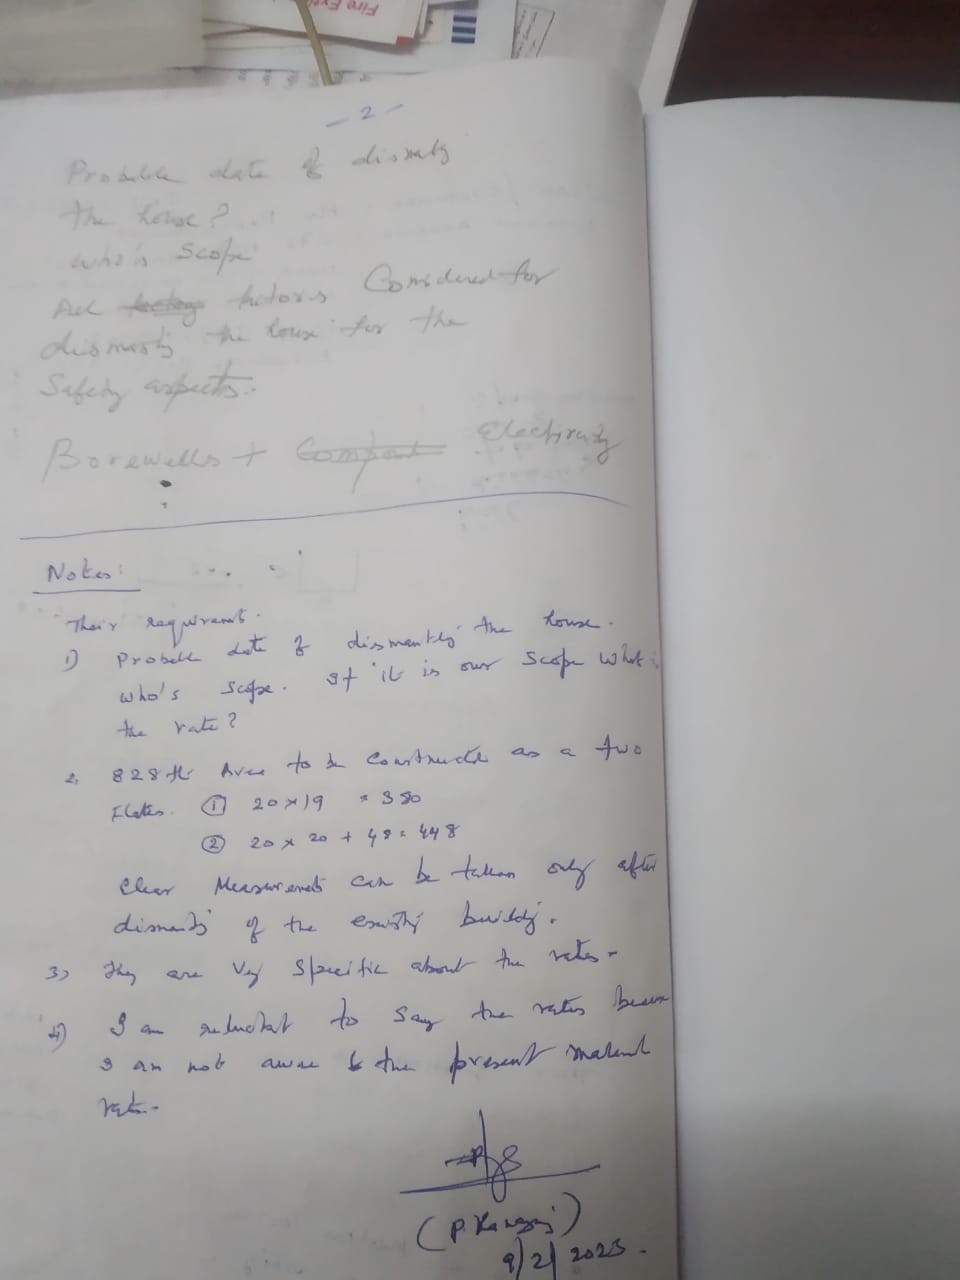 Fire Exti
- 2 -
Probable date of dismantlg
the house?
who's scope
All factors Considered for
dismantlg the house for the
Safety aspects.
Borewells + Compound Electricity
Notes:
Their requirement.
1) Probable date of dismantlg the house.
who's scope. If it is our scope what is
the rate?
2, 828 ft Area to be Constructed as a two
Flates. ① 20 x 19 = 380
② 20 x 20 + 48 = 448
Clear Measurements can be taken only after
dismantlg of the existig buildig.
3) They are Very Specific about the rates.
4) I am reluctant to say the rates because
I am not aware of the present material
rates.
(P.
9/2/2023.